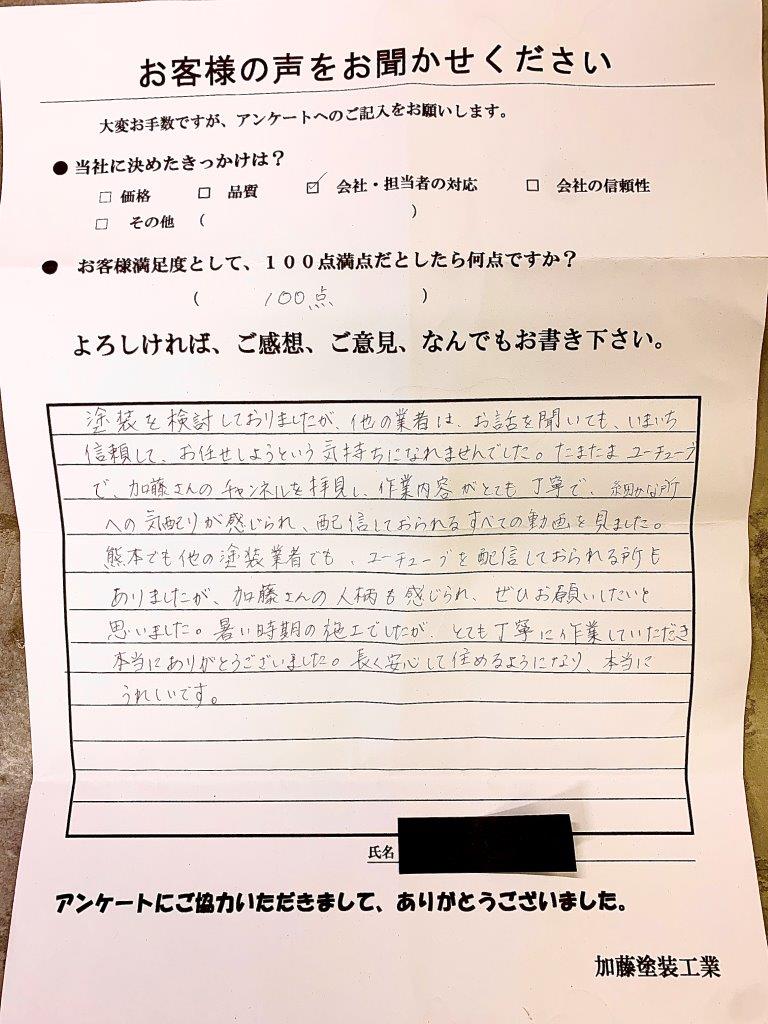 お客様の声をお聞かせください
大変お手数ですが、アンケートへのご記入をお願いします。
● 当社に決めたきっかけは？
□ 価格 □ 品質 ☑ 会社・担当者の対応 □ 会社の信頼性
□ その他 （ ）
● お客様満足度として、１００点満点だとしたら何点ですか？
（ 100点 ）
よろしければ、ご感想、ご意見、なんでもお書き下さい。
塗装を検討しておりましたが、他の業者は、お話を聞いても、いまいち
信頼して、お任せしようという気持ちになれませんでした。たまたまユーチューブ
で、加藤さんのチャンネルを拝見し、作業内容がとても丁寧で、細かな所
への気配りが感じられ、配信しておられるすべての動画を見ました。
熊本でも他の塗装業者でも、ユーチューブを配信しておられる所も
ありましたが、加藤さんの人柄も感じられ、ぜひお願いしたいと
思いました。暑い時期の施工でしたが、とても丁寧に作業していただき
本当にありがとうございました。長く安心して住めるようになり、本当に
うれしいです。
氏名
アンケートにご協力いただきまして、ありがとうございました。
加藤塗装工業